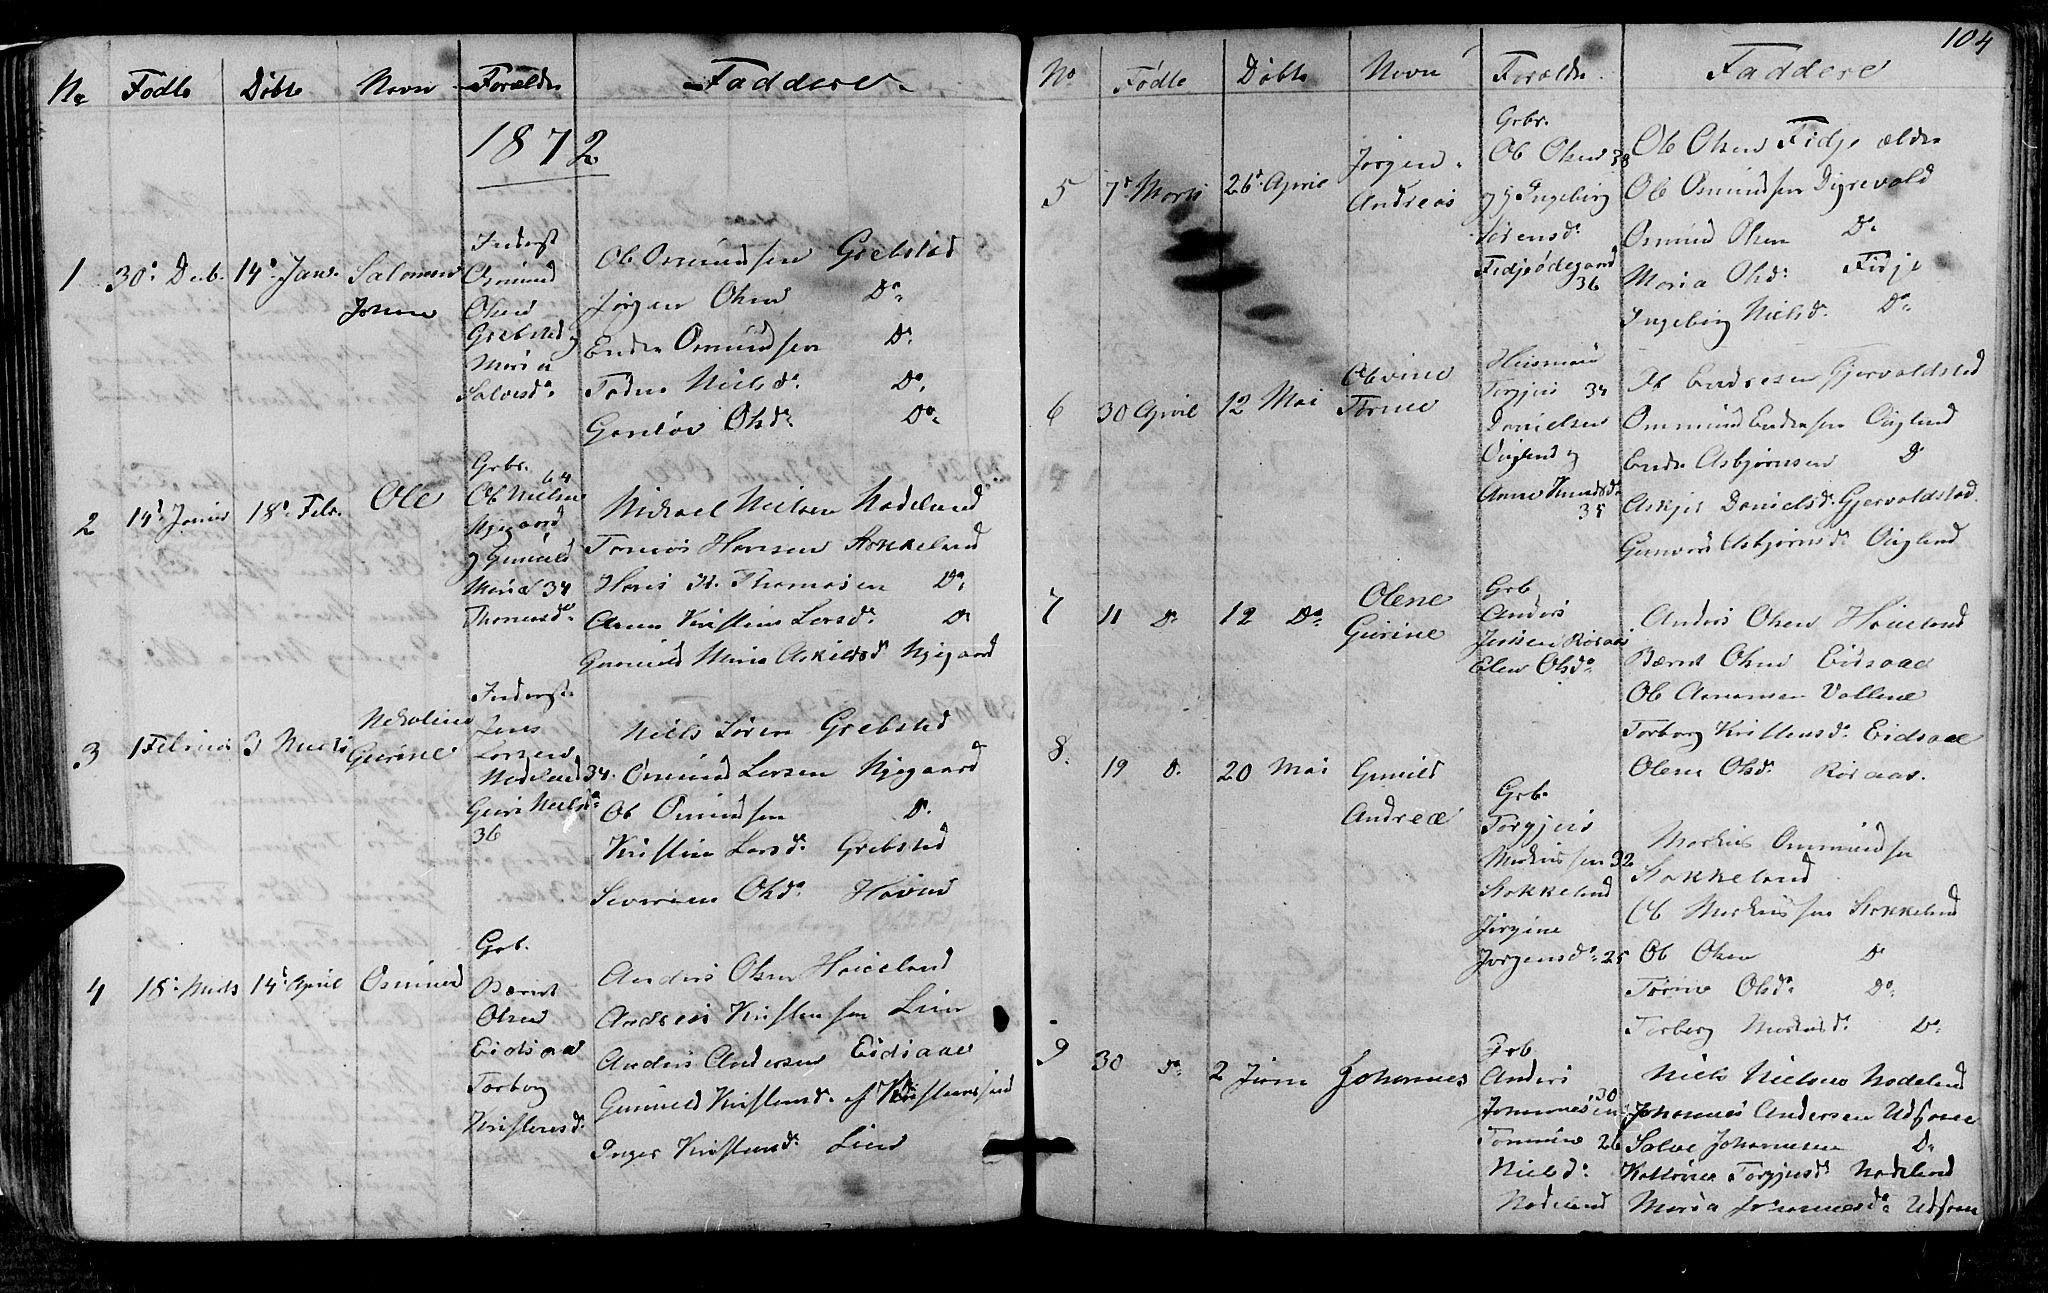 No Fødte Døbte Navn Forældre Faddere
1872
1 30te Decb. 14de Janr. Salomon
Johan
Inderst
Osmund
Olsen
Grebsted
Maria
Salvesdr
Ole Osmundsen Grebstad
Jørgen Olsen Do
Endre Osmundsen Do
Nielsdr. Do
Olsdr. Do
2 14de Januar 18de Febr. Ole
Grbr.
Ole Nielsen 64
Njegaard
og Gunild
Maria 34
Thomasdr
Michael Nielsen Nodeland
Tomas Hansen Stokkeland
Hans H. Thomasen Do
Anne Kristine Larsdr. Do
Gunnild Maria Askildsdr Njegaard
3 1 Februar 3 Marts Nekoline
Gurine
Inderst
Lars
Larsen
Nodeland 34.
Guri Nielsdr
36
Niels Søren Grebsted
Osmund Larsen Njegaard
Ole Osmundsen Do
Kristine Larsdr. Grebsted
Severine Olsdr Haven
4 18de Marts 14de April Osmund
Grb.
Bærnt
Olsen
Eidsaae
Torborg
Kristensdr
Anders Olsen Høieland
Andreas Kristensen Lien
Anders Andersen Eidsaae
Gunvild Kristensdr. af Kristianssand
Inger Kristensdr Lien
104
No Fødte Døbte Navn Forældre Faddere
5 7de Marts 26de April Jørgen
Andreas
Grbr.
Ole Olsen 38
og Ingeborg
Sørensdr
Fidjeødegaard
36
Ole Olsen Fidje ældre
Ole Osmundsen Dyrevold
Osmund Olsen Do
Maria Olsdr. Fidje
Ingeborg Nielsdr. Do
6 30 April 12 Mai Olevine
Torine
Huusmand
Torgjus 34
Danielsen
Øigland og
Anne Knudsdr
35
Ole Endresen Gjervoldstad
Ommund Endresen Øigland
Endre Asbjørnsen Do
Askjer Danielsdr. Gjervoldstad
Gunvor Asbjørnsdr Øigland
7 11 Do 12 Do Olene
Gurine
Grb
Anders
Jensen Røsaas
Elen Olsdr
Anders Olsen Høieland
Bærnt Olsen Eidsaae
Ole Vollene
Torborg Kristensdr. Eidsaae
Olene Olsdr. Røsaas.
8. 19 Do. 20 Mai Gunild
Andreæ
Grb.
Torgjus
Markussen 32
Stokkeland
Jørgine
Jørgensdr. 25
Markus Ommundsen
Stokkeland
Ole Markussen Stokkeland
Ole Olsen Do
Torine Olsdr Do
Torborg Markusdr. Do
9 30 Do 2 Juni Johannes
Grb
Anders
Johannesen 30
Tomine 26
Nielsdr.
Nodeland
Niels Nielsen Nodeland
Johannes Andersen Udsone
Salve Johannesen Do
Katrine Torgjusdr Nodeland
Maria Johannesdr Udsone